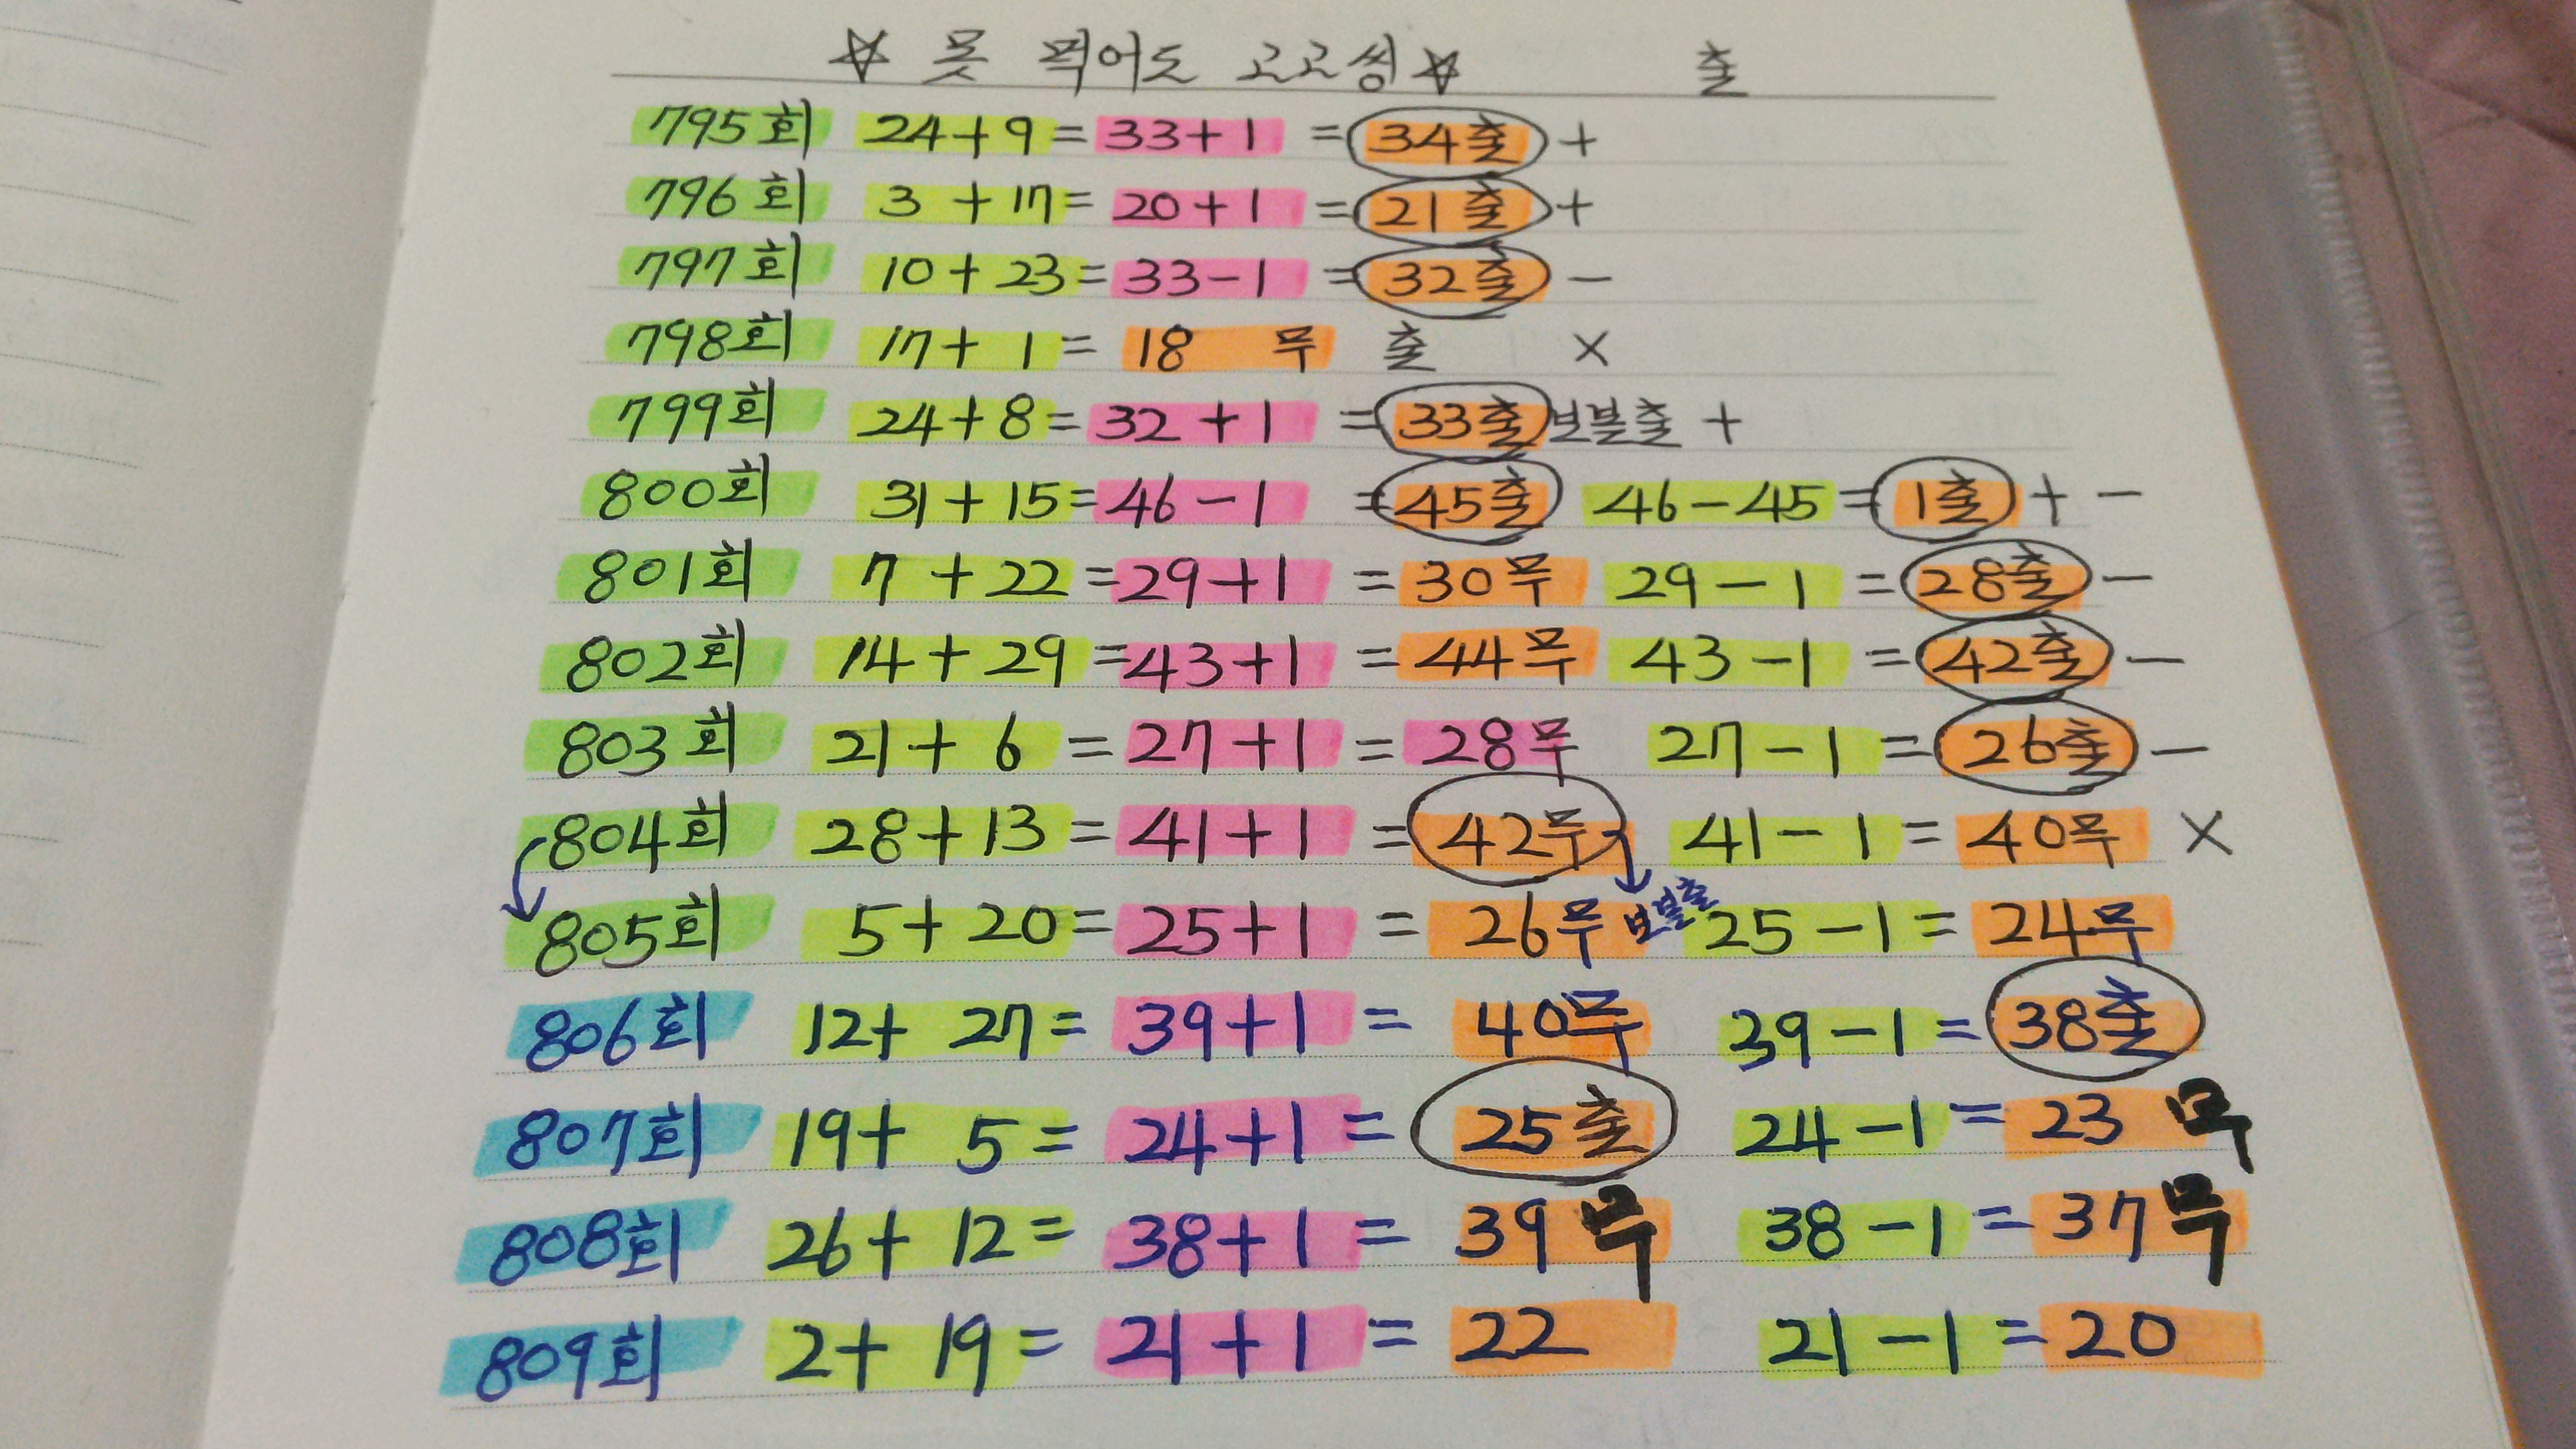 ☆ 못 찍어도 고고씽 ☆ 출
795회 24+9=33+1=34출 +
796회 3+17=20+1=21출 +
797회 10+23=33-1=32출 -
798회 17+1=18 무 출 ×
799회 24+8=32+1=33출 보볼출 +
800회 31+15=46-1=45출 46-45=1출 + -
801회 7+22=29+1=30무 29-1=28출 -
802회 14+29=43+1=44무 43-1=42출 -
803회 21+6=27+1=28무 27-1=26출 -
804회 28+13=41+1=42무 41-1=40무 ×
805회 5+20=25+1=26무 보볼출 25-1=24무
806회 12+27=39+1=40무 39-1=38출
807회 19+5=24+1=25출 24-1=23 무
808회 26+12=38+1=39 무 38-1=37무
809회 2+19=21+1=22 21-1=20